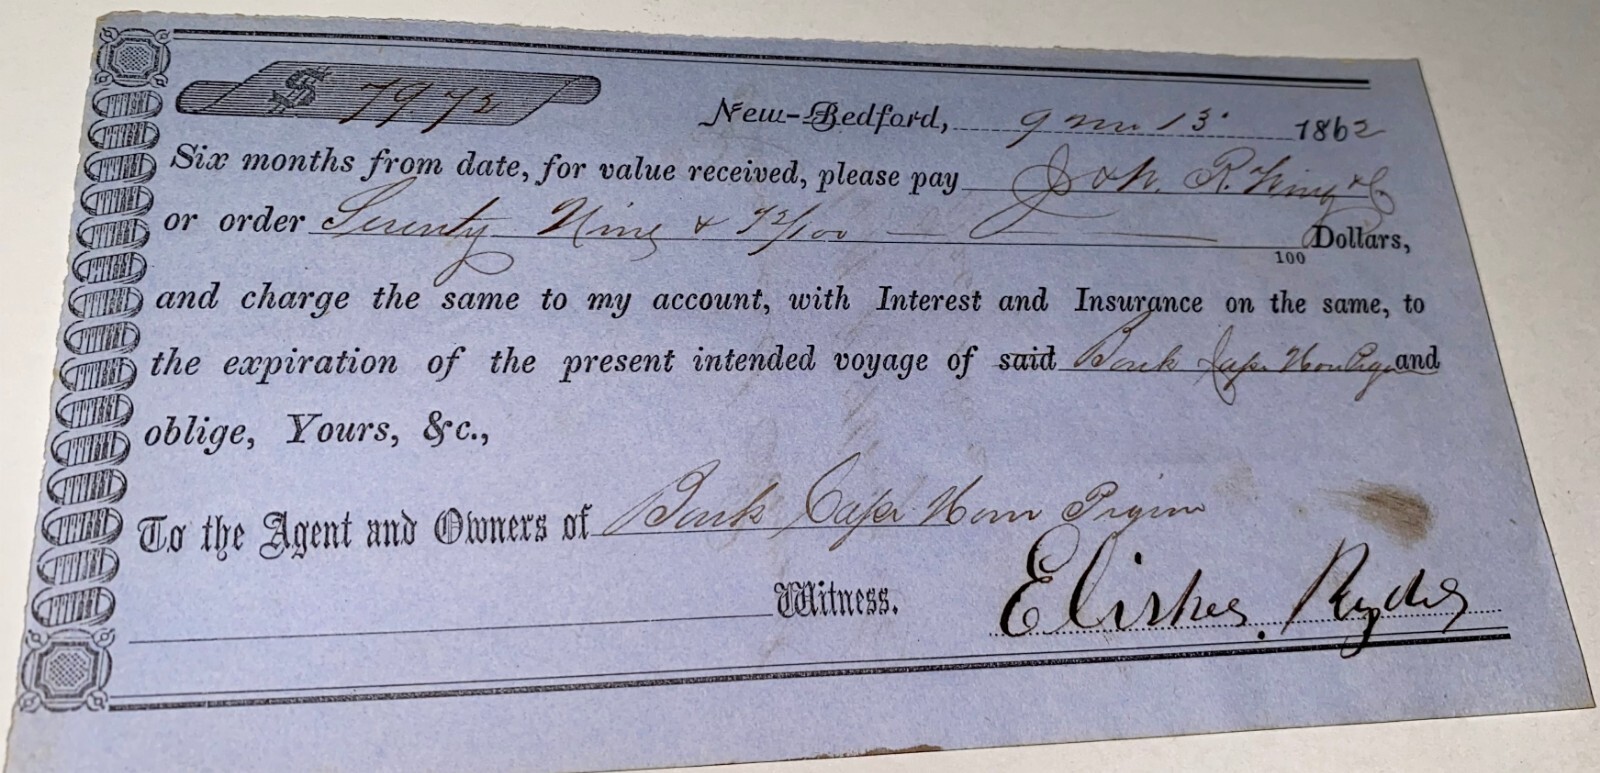 $ 79.72
New-Bedford, 9 mo 13. 1862
Six months from date, for value received, please pay J & W. R. Wing & Co
or order Seventy Nine & 72/100 — Dollars,
100
and charge the same to my account, with Interest and Insurance on the same, to
the expiration of the present intended voyage of said Bark Cape Horn Pigeon and
oblige, Yours, &c.,
To the Agent and Owners of Bark Cape Horn Pigeon
Witness. Elisha Ryder